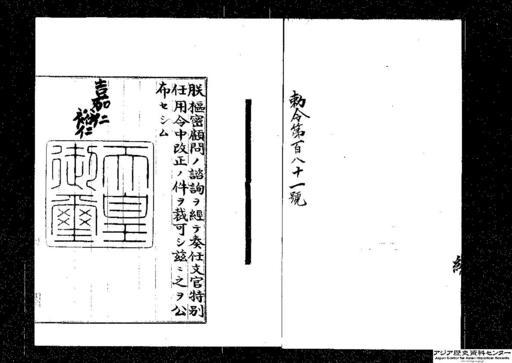 勅令第百八十一號
朕樞密顧問ノ諮詢ヲ經テ奏任文官特別
任用令中改正ノ件ヲ裁可シ茲ニ之ヲ公
布セシム
嘉仁
裕仁
天皇
御璽
アジア歴史資料センター
Japan Center for Asian Historical Records